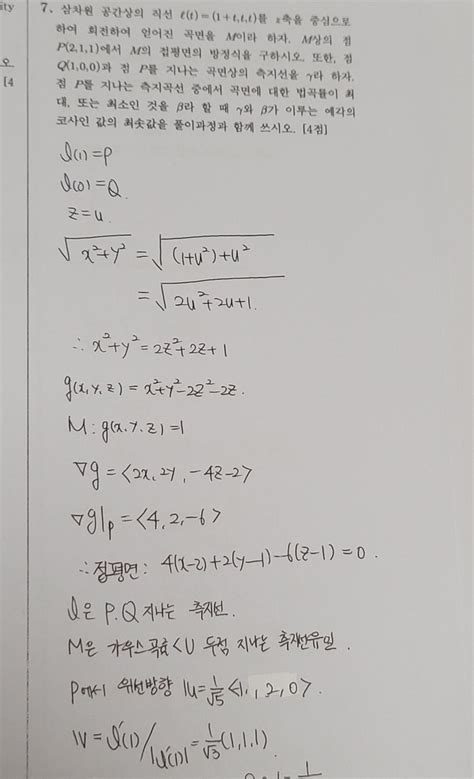 ity
오
[4
7. 삼차원 공간상의 직선 ℓ(t)=(1+t,t,t)를 z축을 중심으로
하여 회전하여 얻어진 곡면을 M이라 하자. M상의 점
P(2,1,1)에서 M의 접평면의 방정식을 구하시오. 또한, 점
Q(1,0,0)과 점 P를 지나는 곡면상의 측지선을 γ라 하자.
점 P를 지나는 측지곡선 중에서 곡면에 대한 법곡률이 최
대, 또는 최소인 것을 β라 할 때 γ와 β가 이루는 예각의
코사인 값의 최솟값을 풀이과정과 함께 쓰시오. [4점]
l(1)=P
l(0)=Q.
z=u.
√x²+y² = √(1+u²)+u²
= √2u²+2u+1.
∴ x²+y²=2z²+2z+1
g(x,y,z)=x²+y²-2z²-2z.
M: g(x.y.z)=1
∇g=<2x,2y,-4z-2>
∇g|p=<4,2,-6>
∴접평면: 4(x-2)+2(y-1)-6(z-1)=0.
l은 P.Q 지나는 측지선.
M은 가우스곡률<0 두점 지나는 측지선유일.
P에서 위선방향 u=1/√5<1,,2,0>.
V=l'(1)/|l'(1)|=1/√3(1,1,1)